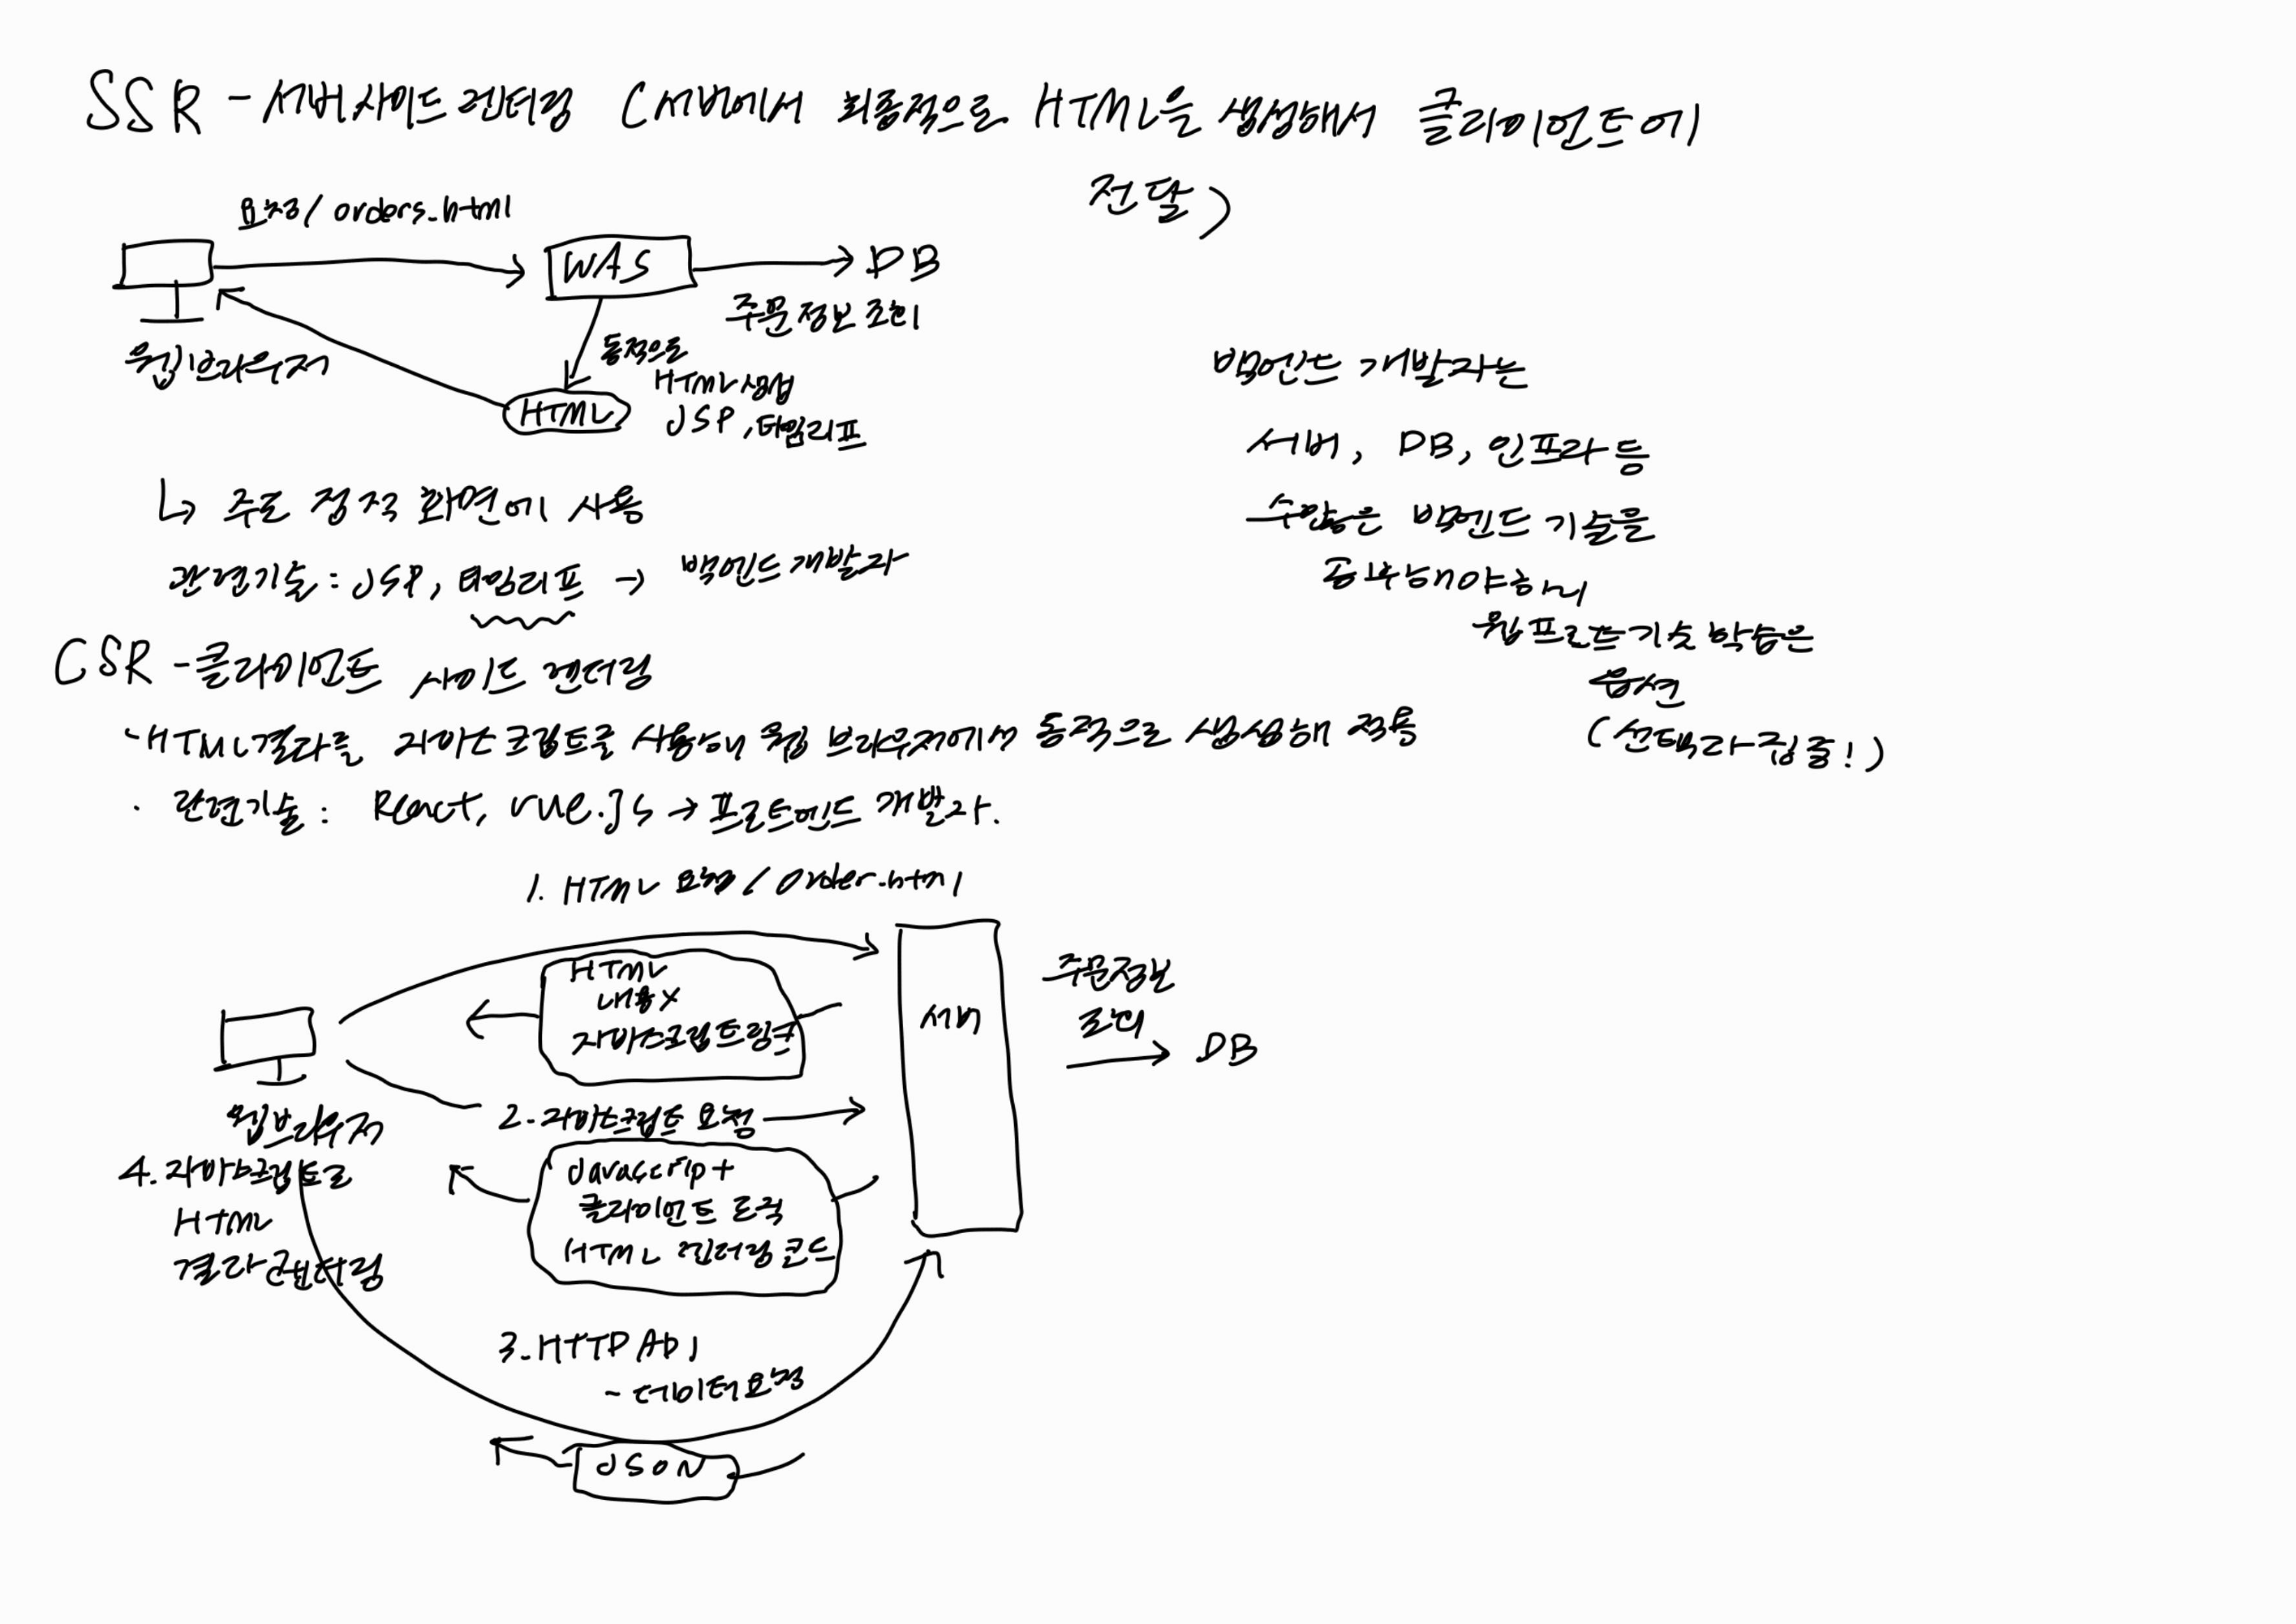 SSR - 서버사이드 렌더링 (서버에서 최종적으로 HTML을 생성해서 클라이언트에
전달)
요청/ orders.html
WAS
DB
주문정보 조회
웹브라우저
동적으로
HTML 생성
JSP, 타임리프
HTML
↳ 주로 정적 화면에 사용
관련기술 : JSP, 타임리프 → 백엔드 개발자
백엔드 개발자는
서버, DB, 인프라 등
수많은 백엔드 기술을
공부해야하니
웹프론트 기술 학습은
옵션
(선택과 집중!)
CSR - 클라이언트 사이드 렌더링
- HTML 결과를 자바스크립트를 사용해 웹 브라우저에서 동적으로 생성해 적용
· 관련기술 : React, vue.js → 프론트엔드 개발자.
1. HTML 요청 / order.html
HTML
내용 X
자바스크립트 링크
서버
주문정보
조회
DB
웹브라우저
2. 자바스크립트 요청
Javascript
클라이언트 로직
HTML 렌더링 코드
4. 자바스크립트로
HTML
결과 렌더링
3. HTTP API
- 데이터 요청
JSON